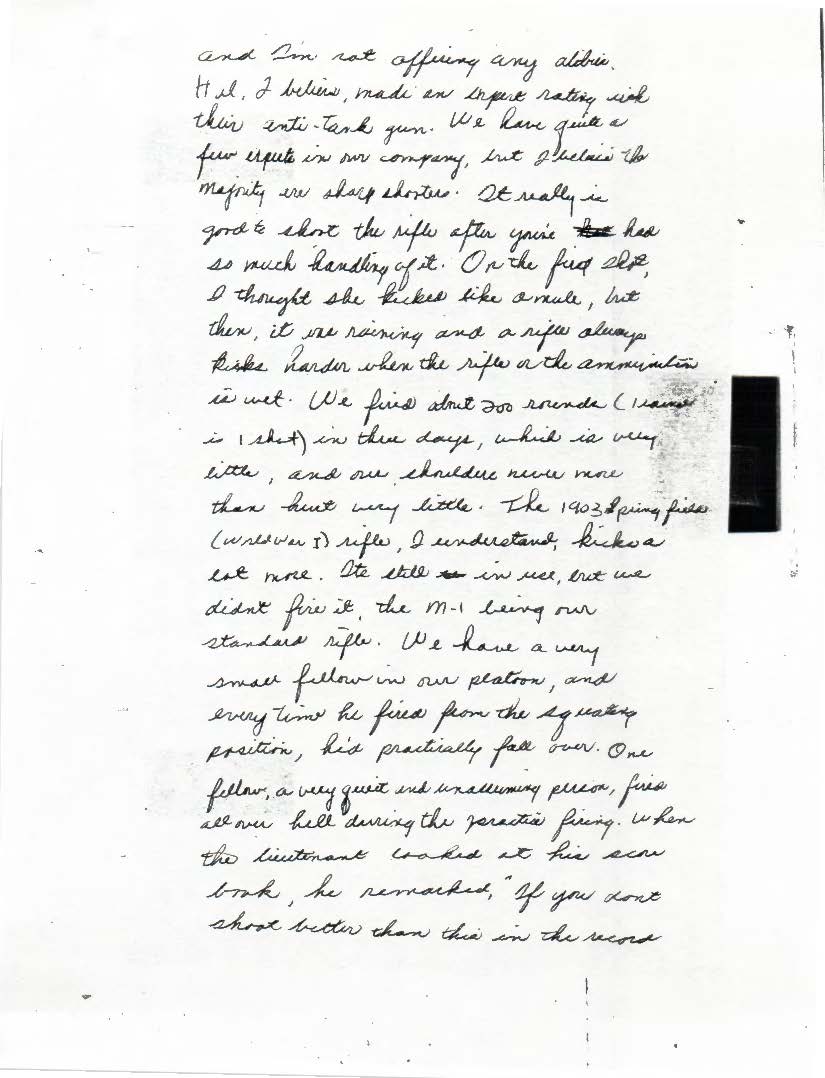 and I'm not offering any alibis.
Hal, I believe, made an expert rating with
their anti-tank gun. We have quite a
few experts in our company, but I believe the
majority are sharp shooters. It really is
good to shoot the rifle after you've had
so much handling of it. On the first shot,
I thought she kicked like a mule, but
then, it was raining and a rifle always
kicks harder when the rifle or the ammunition
is wet. We fired about 200 rounds (1 round
is 1 shot) in three days, which is very
little, and our shoulders never more
than hurt very little. The 1903 Springfield
(World War I) rifle, I understand, kicks a
lot more. Its still in use, but we
didnt fire it, the M-1 being our
standard rifle. We have a very
small fellow in our platoon, and
every time he fired from the squating
position, he'd practically fall over. One
fellow, a very quiet and unassuming person, fired
all over hell during the practice firing. When
the lieutenant looked at his score
book, he remarked, "If you dont
shoot better than this in the record